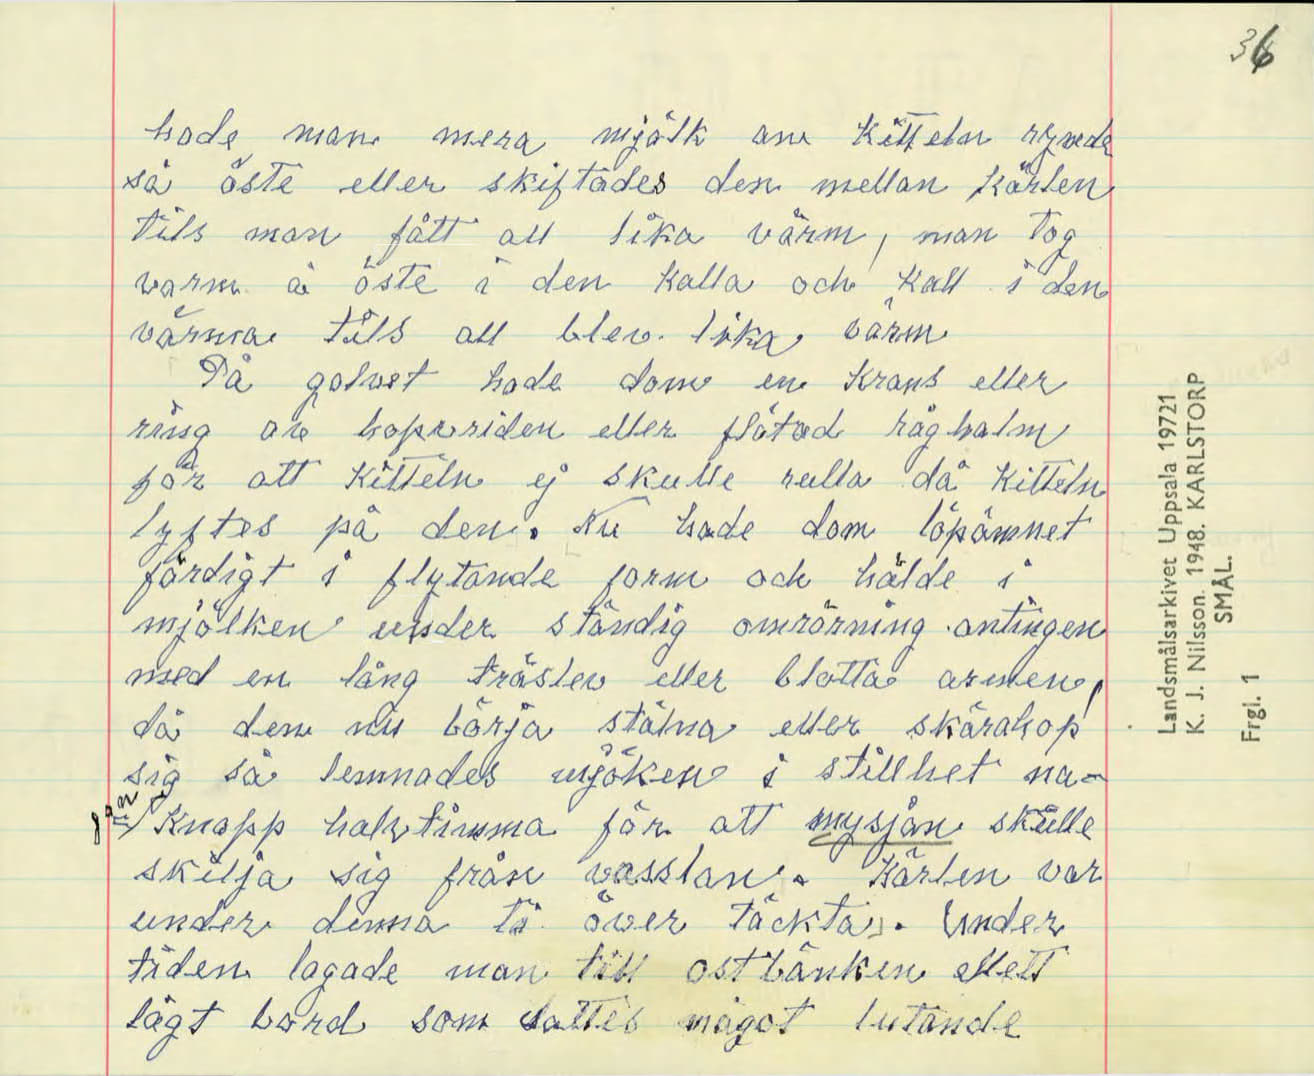 36
hade man mera mjölk än Kitteln rymde
så öste eller skiftades den mellan Kärlen
tils man fått all lika värm, man tog
varm å öste i den Kalla och Kall i den
värma tils all blev lika värm
På golvet hade dom en Krans eller
ring av hopvriden eller flätad råghalm
för att Kitteln ej skulle rulla då Kitteln
lyftes på den. Nu hade dom löpämnet
färdigt i flytande form och hälde i
mjölken under ständig omrörning antingen
med en lång träslev eller blotta armen,
då den nu börja stälna eller skärahop
sig så lemnades mjöken i stillhet na-
Knapp halvtimma för att mysjån skulle
skilja sig från vasslan. Kärlen var
under denna ti över täckta. Under
tiden lagade man till ostbänken ellett
lågt bord som sattes något lutande
Landsmålsarkivet Uppsala 19721
K. J. Nilsson. 1948. KARLSTORP
SMÅL.
Frgl. 1